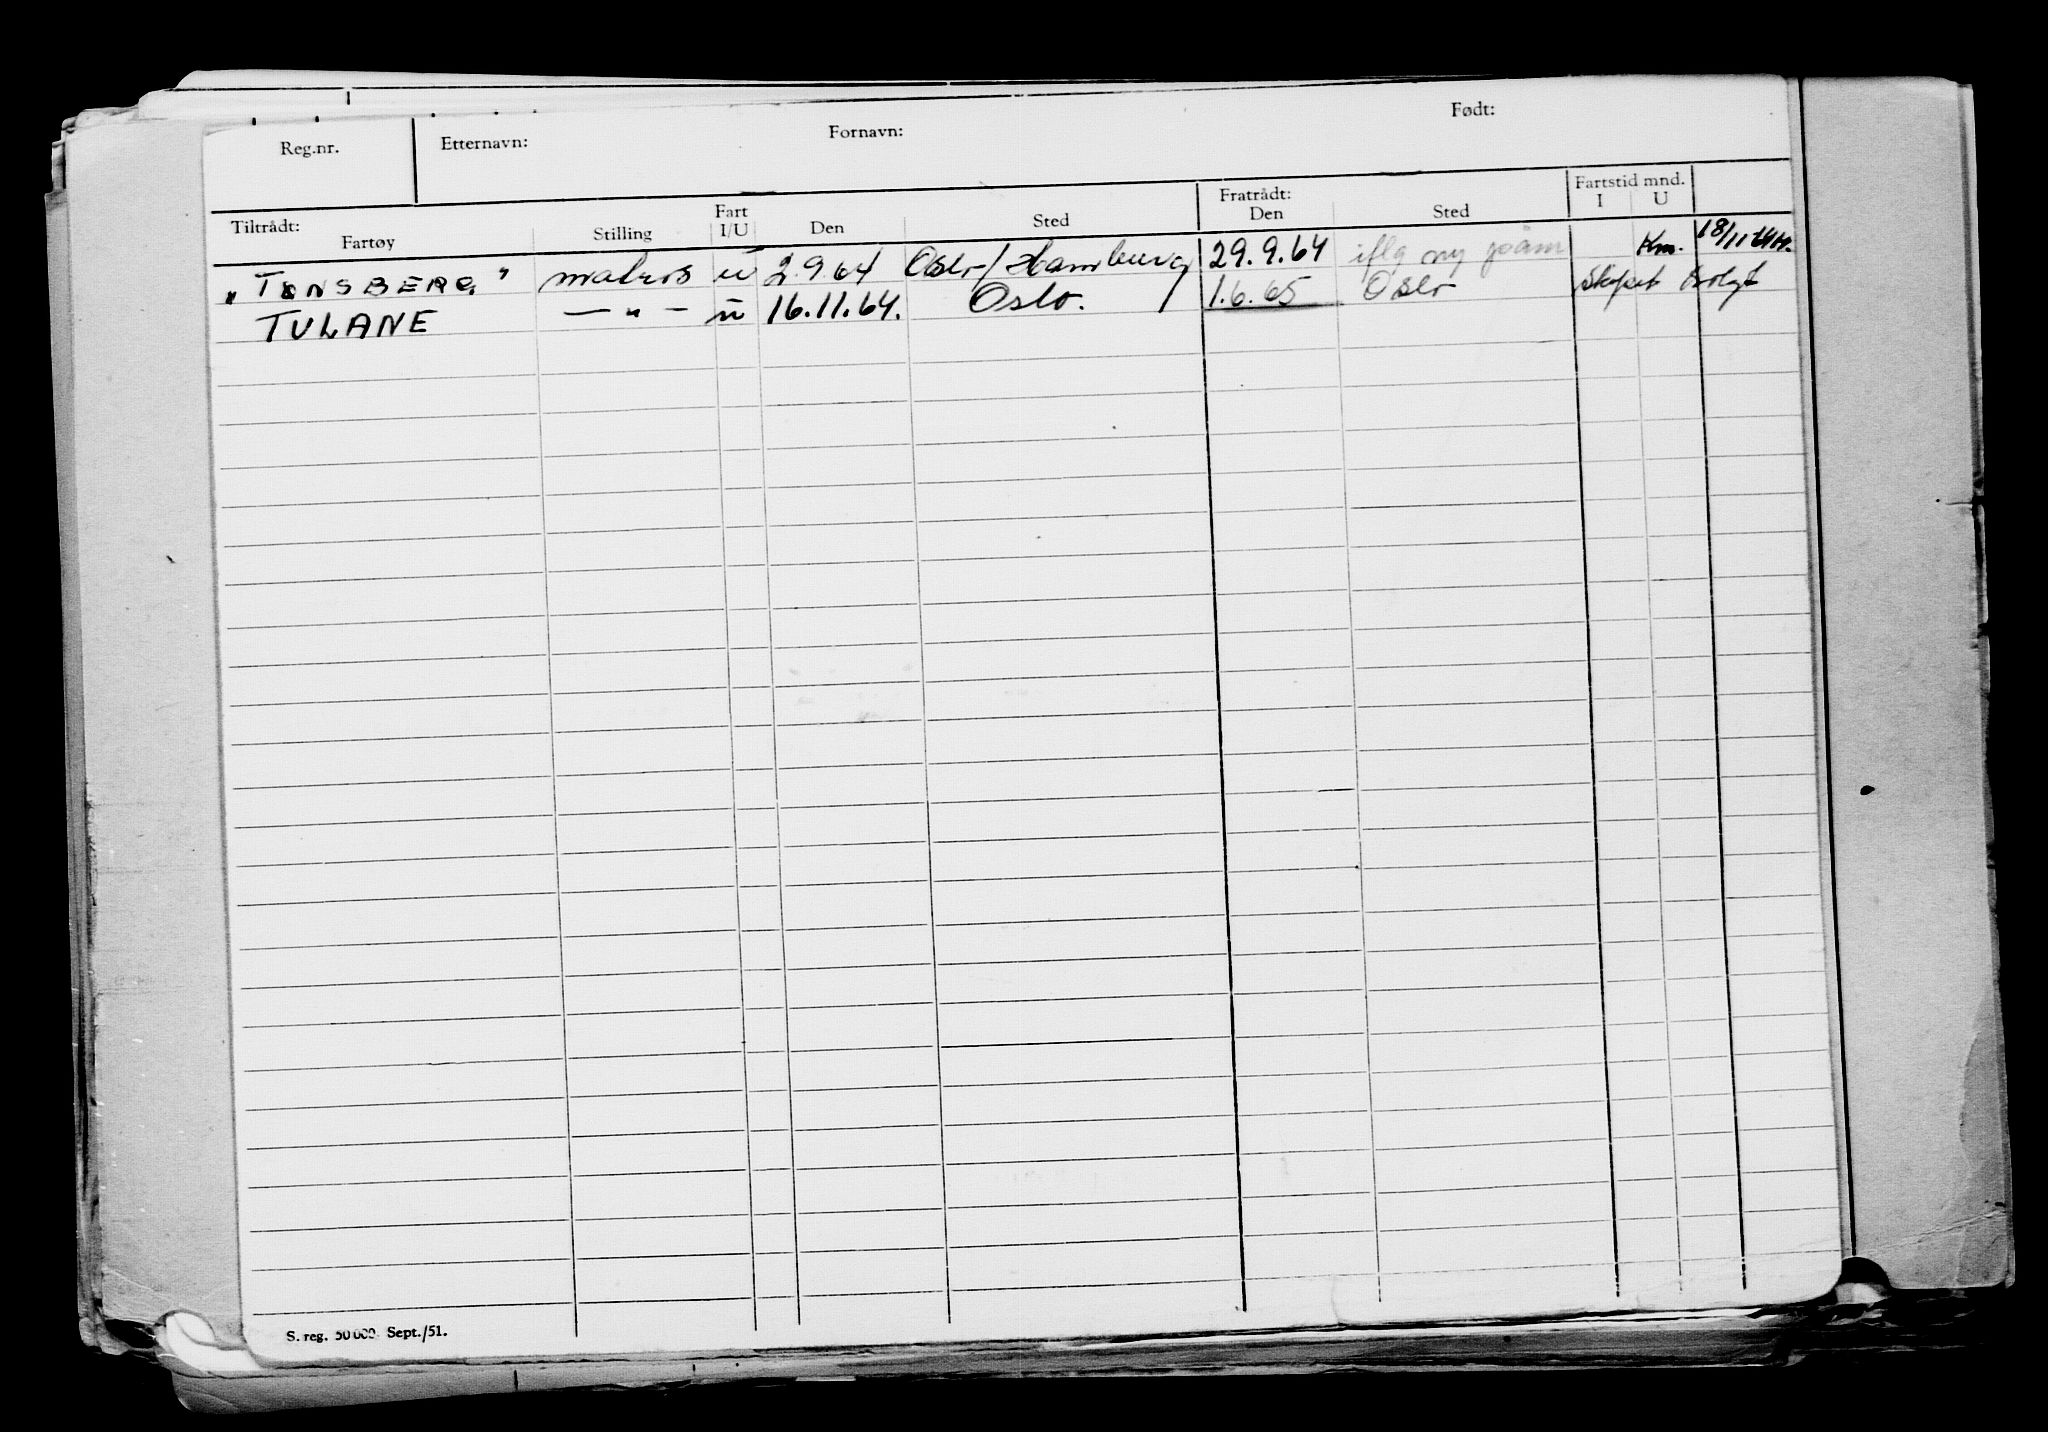 Reg.nr. Etternavn: Fornavn: Født:
Tiltrådt: Fratrådt: Fartstid mnd.
Fartøy Stilling Fart I/U Den Sted Den Sted I U
"TØNSBERG" matros u 2.9.64 Oslo/Hamburg 29.9.64 iflg ny påm Km. 18/11-64
TULANE — " — u 16.11.64. Oslo. 1.6.65 Oslo Skipet solgt
S. reg. 50 000. Sept./51.